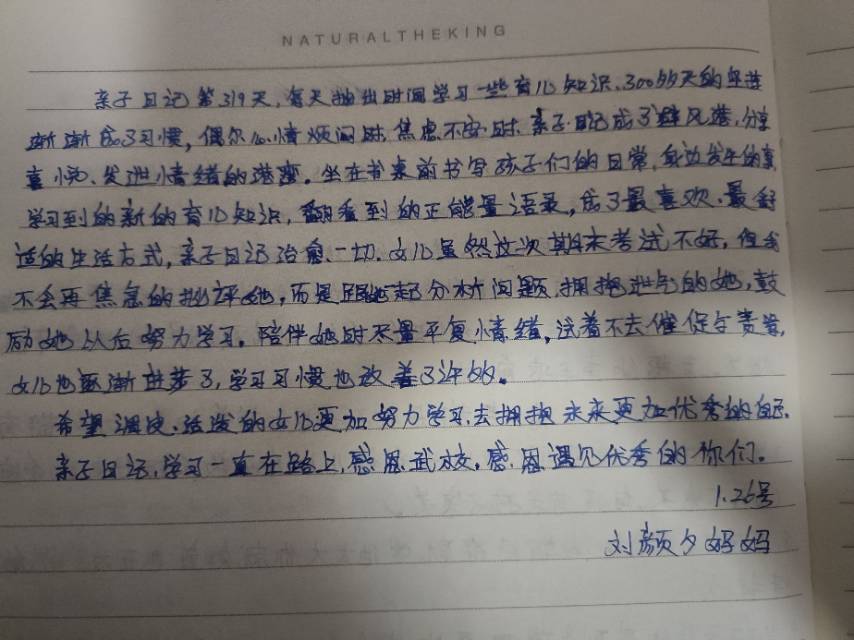 NATURALTHEKING
亲子日记第319天,每天抽出时间学习一些育儿知识,300多天的坚持
渐渐成了习惯,偶尔心情烦闷时、焦虑不安时、亲子日记成了避风港,分享
喜悦、发泄情绪的港湾。坐在书桌前书写孩子们的日常,身边发生的事
学习到的新的育儿知识,翻看到的正能量语录,成了最喜欢、最舒
适的生活方式,亲子日记治愈一切。女儿虽然这次期末考试不好,但我
不会再焦急的批评她,而是跟她一起分析问题,拥抱泄气的她,鼓
励她以后努力学习。陪伴她时尽量平复情绪,试着不去催促与责骂,
女儿也逐渐进步了,学习习惯也改善了许多。
希望调皮、活泼的女儿更加努力学习,去拥抱未来更加优秀的自己。
亲子日记,学习一直在路上,感恩武校,感恩遇见优秀的你们。
1.26号
刘颜夕妈妈